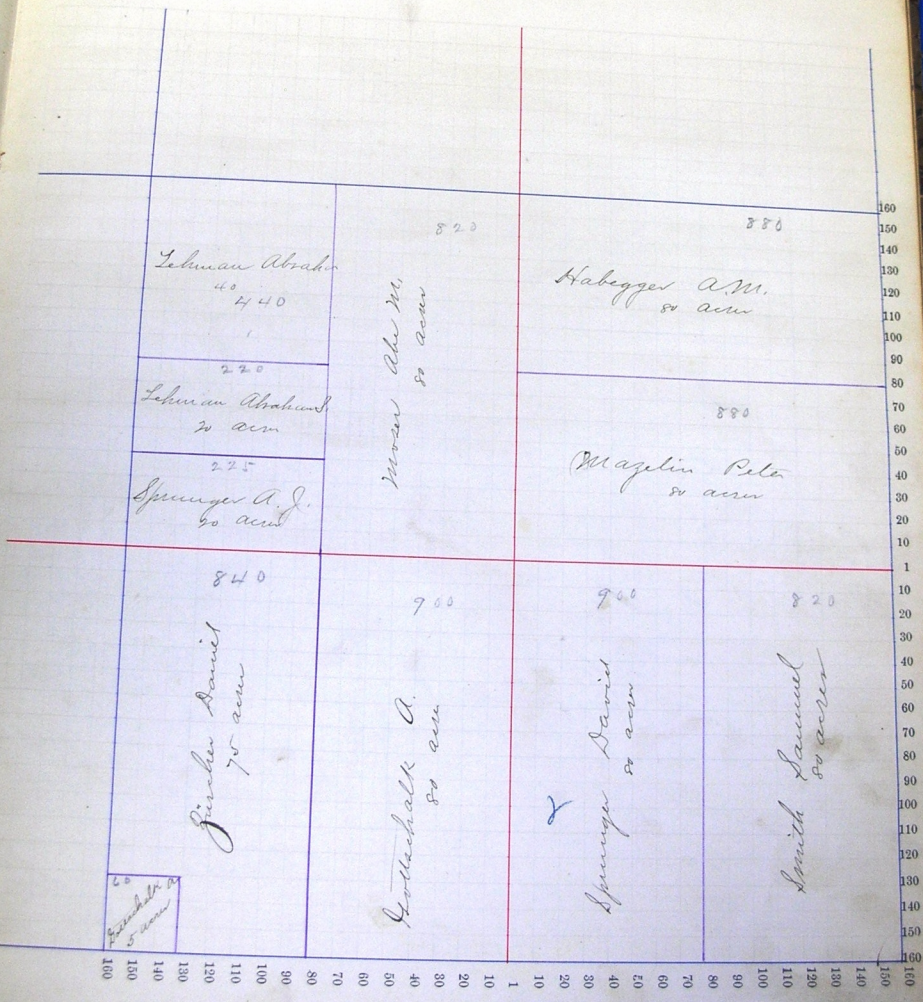 Lehman Abraham
40
440
220
Lehman Abraham J.
20 acres
225
Sprunger A. J.
20 acres
820
Moser Abe M.
80 acres
880
Habegger A.M.
80 acres
880
Mazelin Peter
80 acres
840
Zürcher Daniel
75 acres
60
5 acres
900
Gottschalk A.
80 acres
900
Sprunger David
80 acres
820
Smith Samuel
80 acres
160
150
140
130
120
110
100
90
80
70
60
50
40
30
20
10
1
10
20
30
40
50
60
70
80
90
100
110
120
130
140
150
160
160
150
140
130
120
110
100
90
80
70
60
50
40
30
20
10
1
10
20
30
40
50
60
70
80
90
100
110
120
130
140
150
160